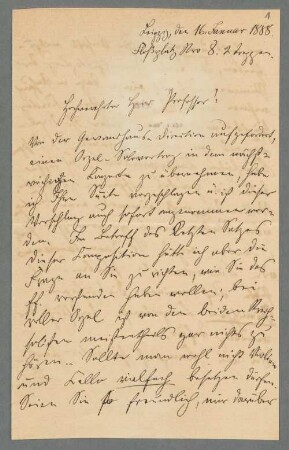 1
Leipzig, den 16. Januar 1888
Roßplatz Nro 8. 2 Treppen.
Hochverehrter Herr Professor!
Von der Gewandhaus-Direction aufgefordert,
einen Orgel-Solovortrag in dem nächst-
wöchentl. Concerte zu übernehmen, habe
ich Ihre Suite vorgeschlagen u. ist dieser
Vorschlag auch sofort angenommen wor-
den. In Betreff des letzten Satzes
dieser Composition hätte ich aber die
Frage an Sie zu richten, wie Sie das
ff verstanden haben wollen; bei
voller Orgel ist von den beiden Streich-
meistentheils gar nichts zu
hören. Sollte man wohl nicht Violine
und Cello vielfach besetzen dürfen.
Seien Sie so freundlich, mir darüber